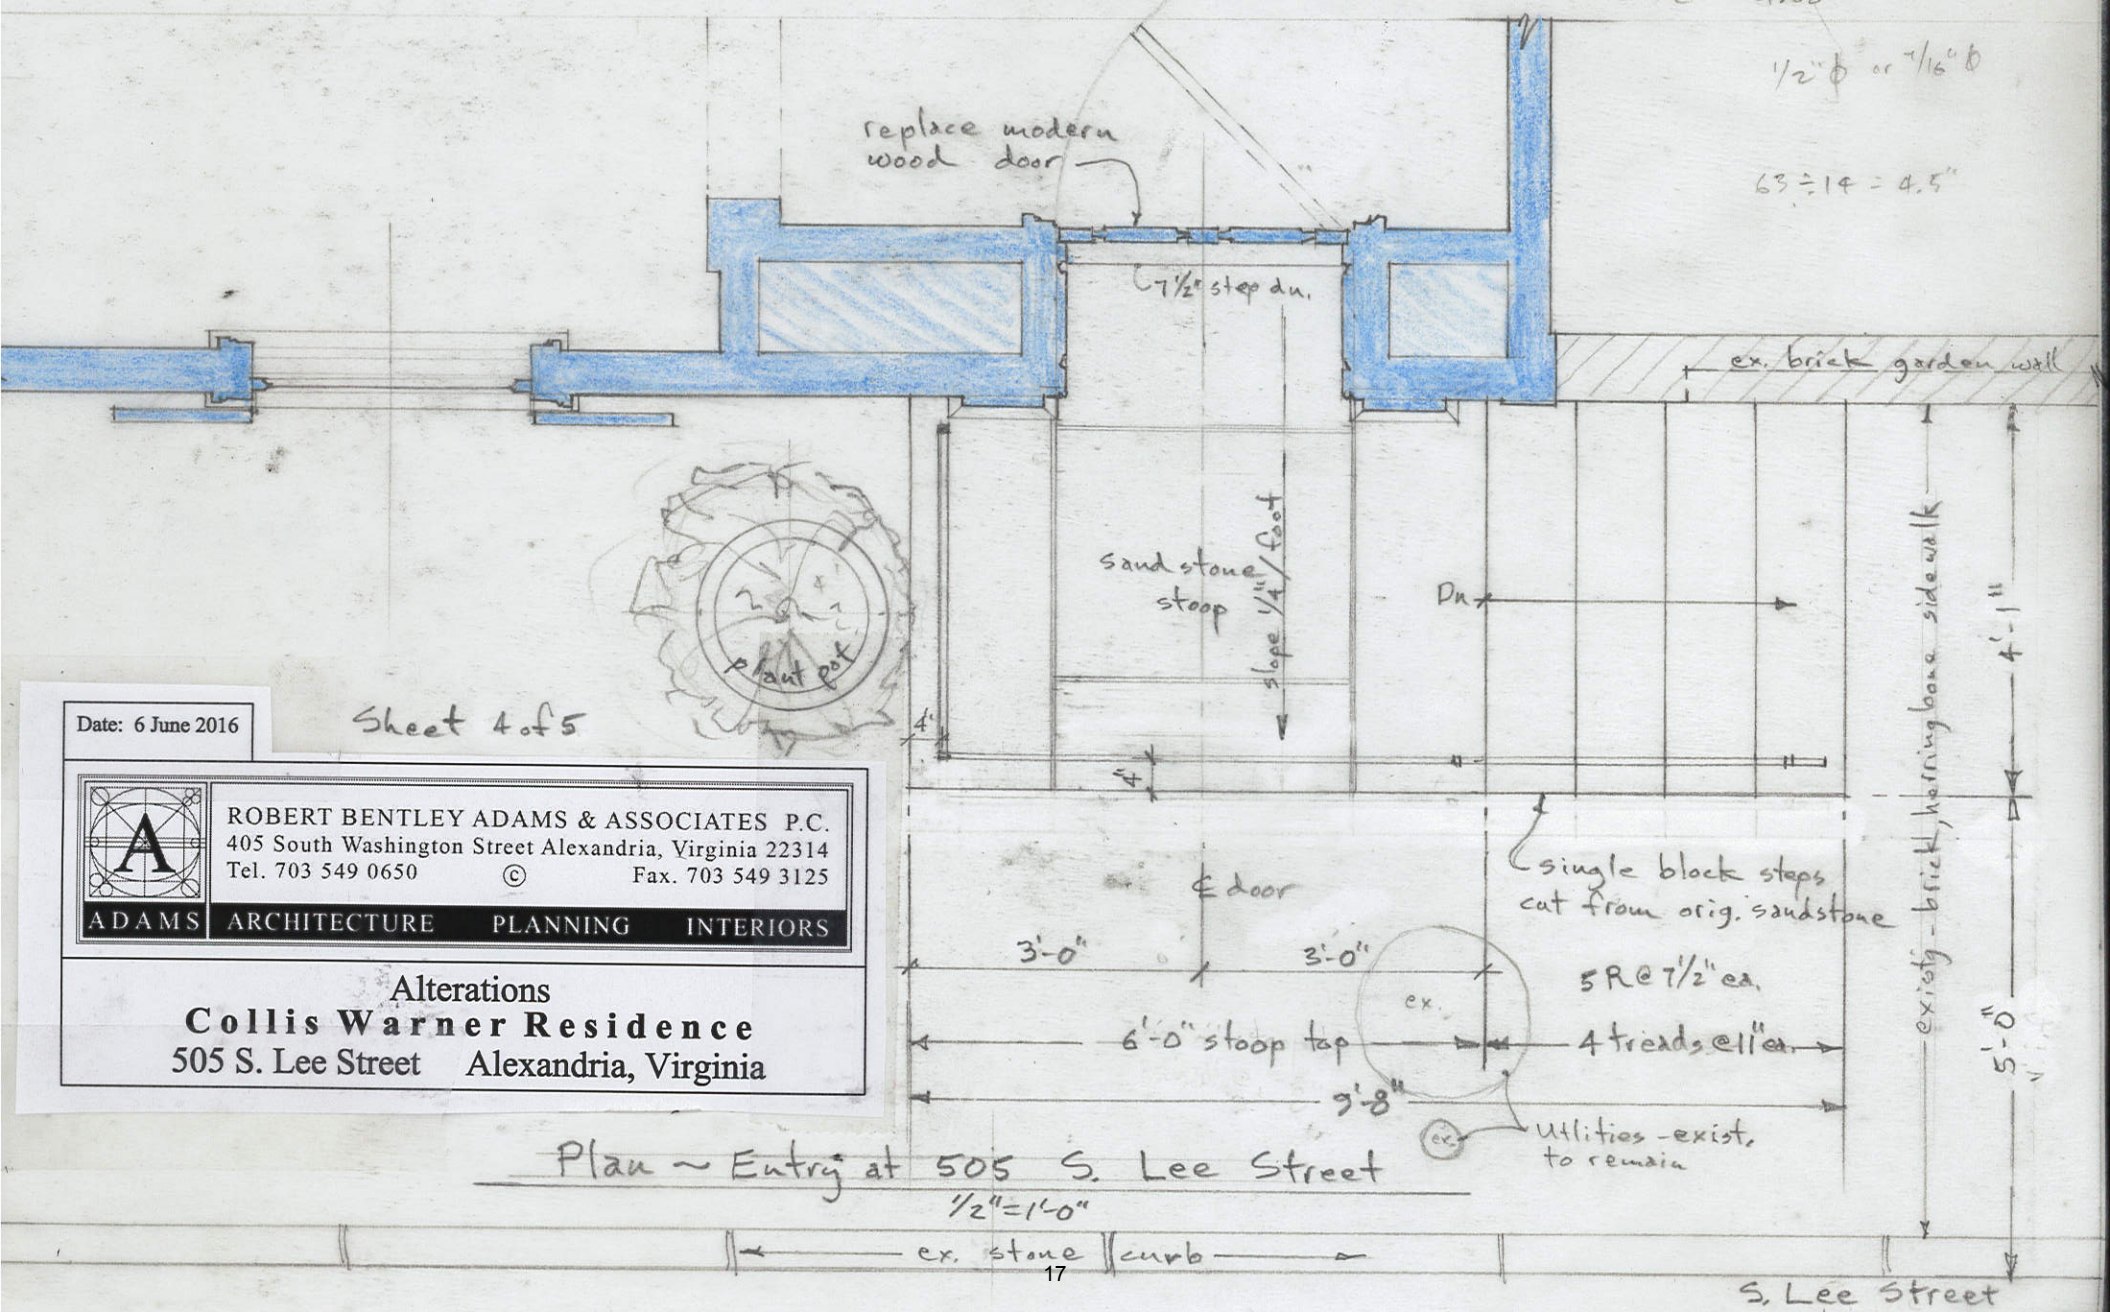 1/2" ϕ or 7/16" ϕ
replace modern
wood door
63 ÷ 14 = 4.5"
7 1/2" step dn.
ex. brick garden wall
sandstone
stoop
slope 1/4"/foot
Dn
existg - brick, herringbone sidewalk
4'-1"
plant pot
4"
4"
Sheet 4 of 5
Date: 6 June 2016
A
ADAMS
ROBERT BENTLEY ADAMS & ASSOCIATES P.C.
405 South Washington Street Alexandria, Virginia 22314
Tel. 703 549 0650 © Fax. 703 549 3125
ARCHITECTURE PLANNING INTERIORS
Alterations
Collis Warner Residence
505 S. Lee Street Alexandria, Virginia
℄ door
single block steps
cut from orig. sandstone
3'-0"
3'-0"
5 R @ 7 1/2" ea.
ex.
6'-0" stoop top
4 treads @ 11" ea.
5'-0"
9'-8"
ex.
Utlities - exist.
to remain
Plan ~ Entry at 505 S. Lee Street
1/2" = 1'-0"
ex. stone curb
17
S. Lee Street